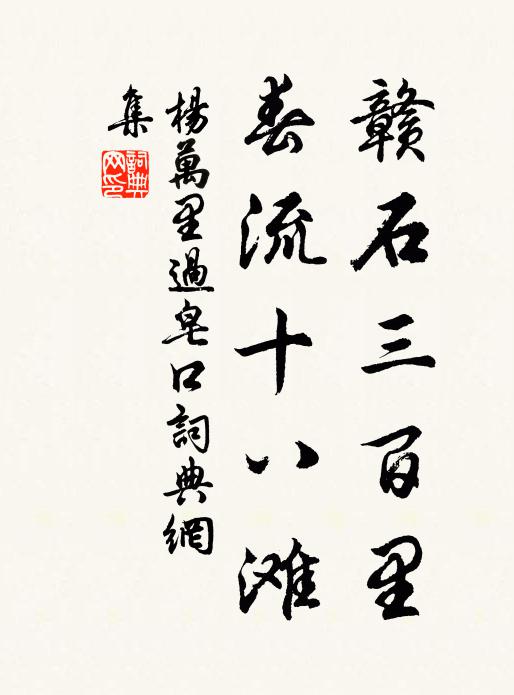 赣石三百里
春流十八滩
楊萬里過皂口詞典網
集
詞典
网印